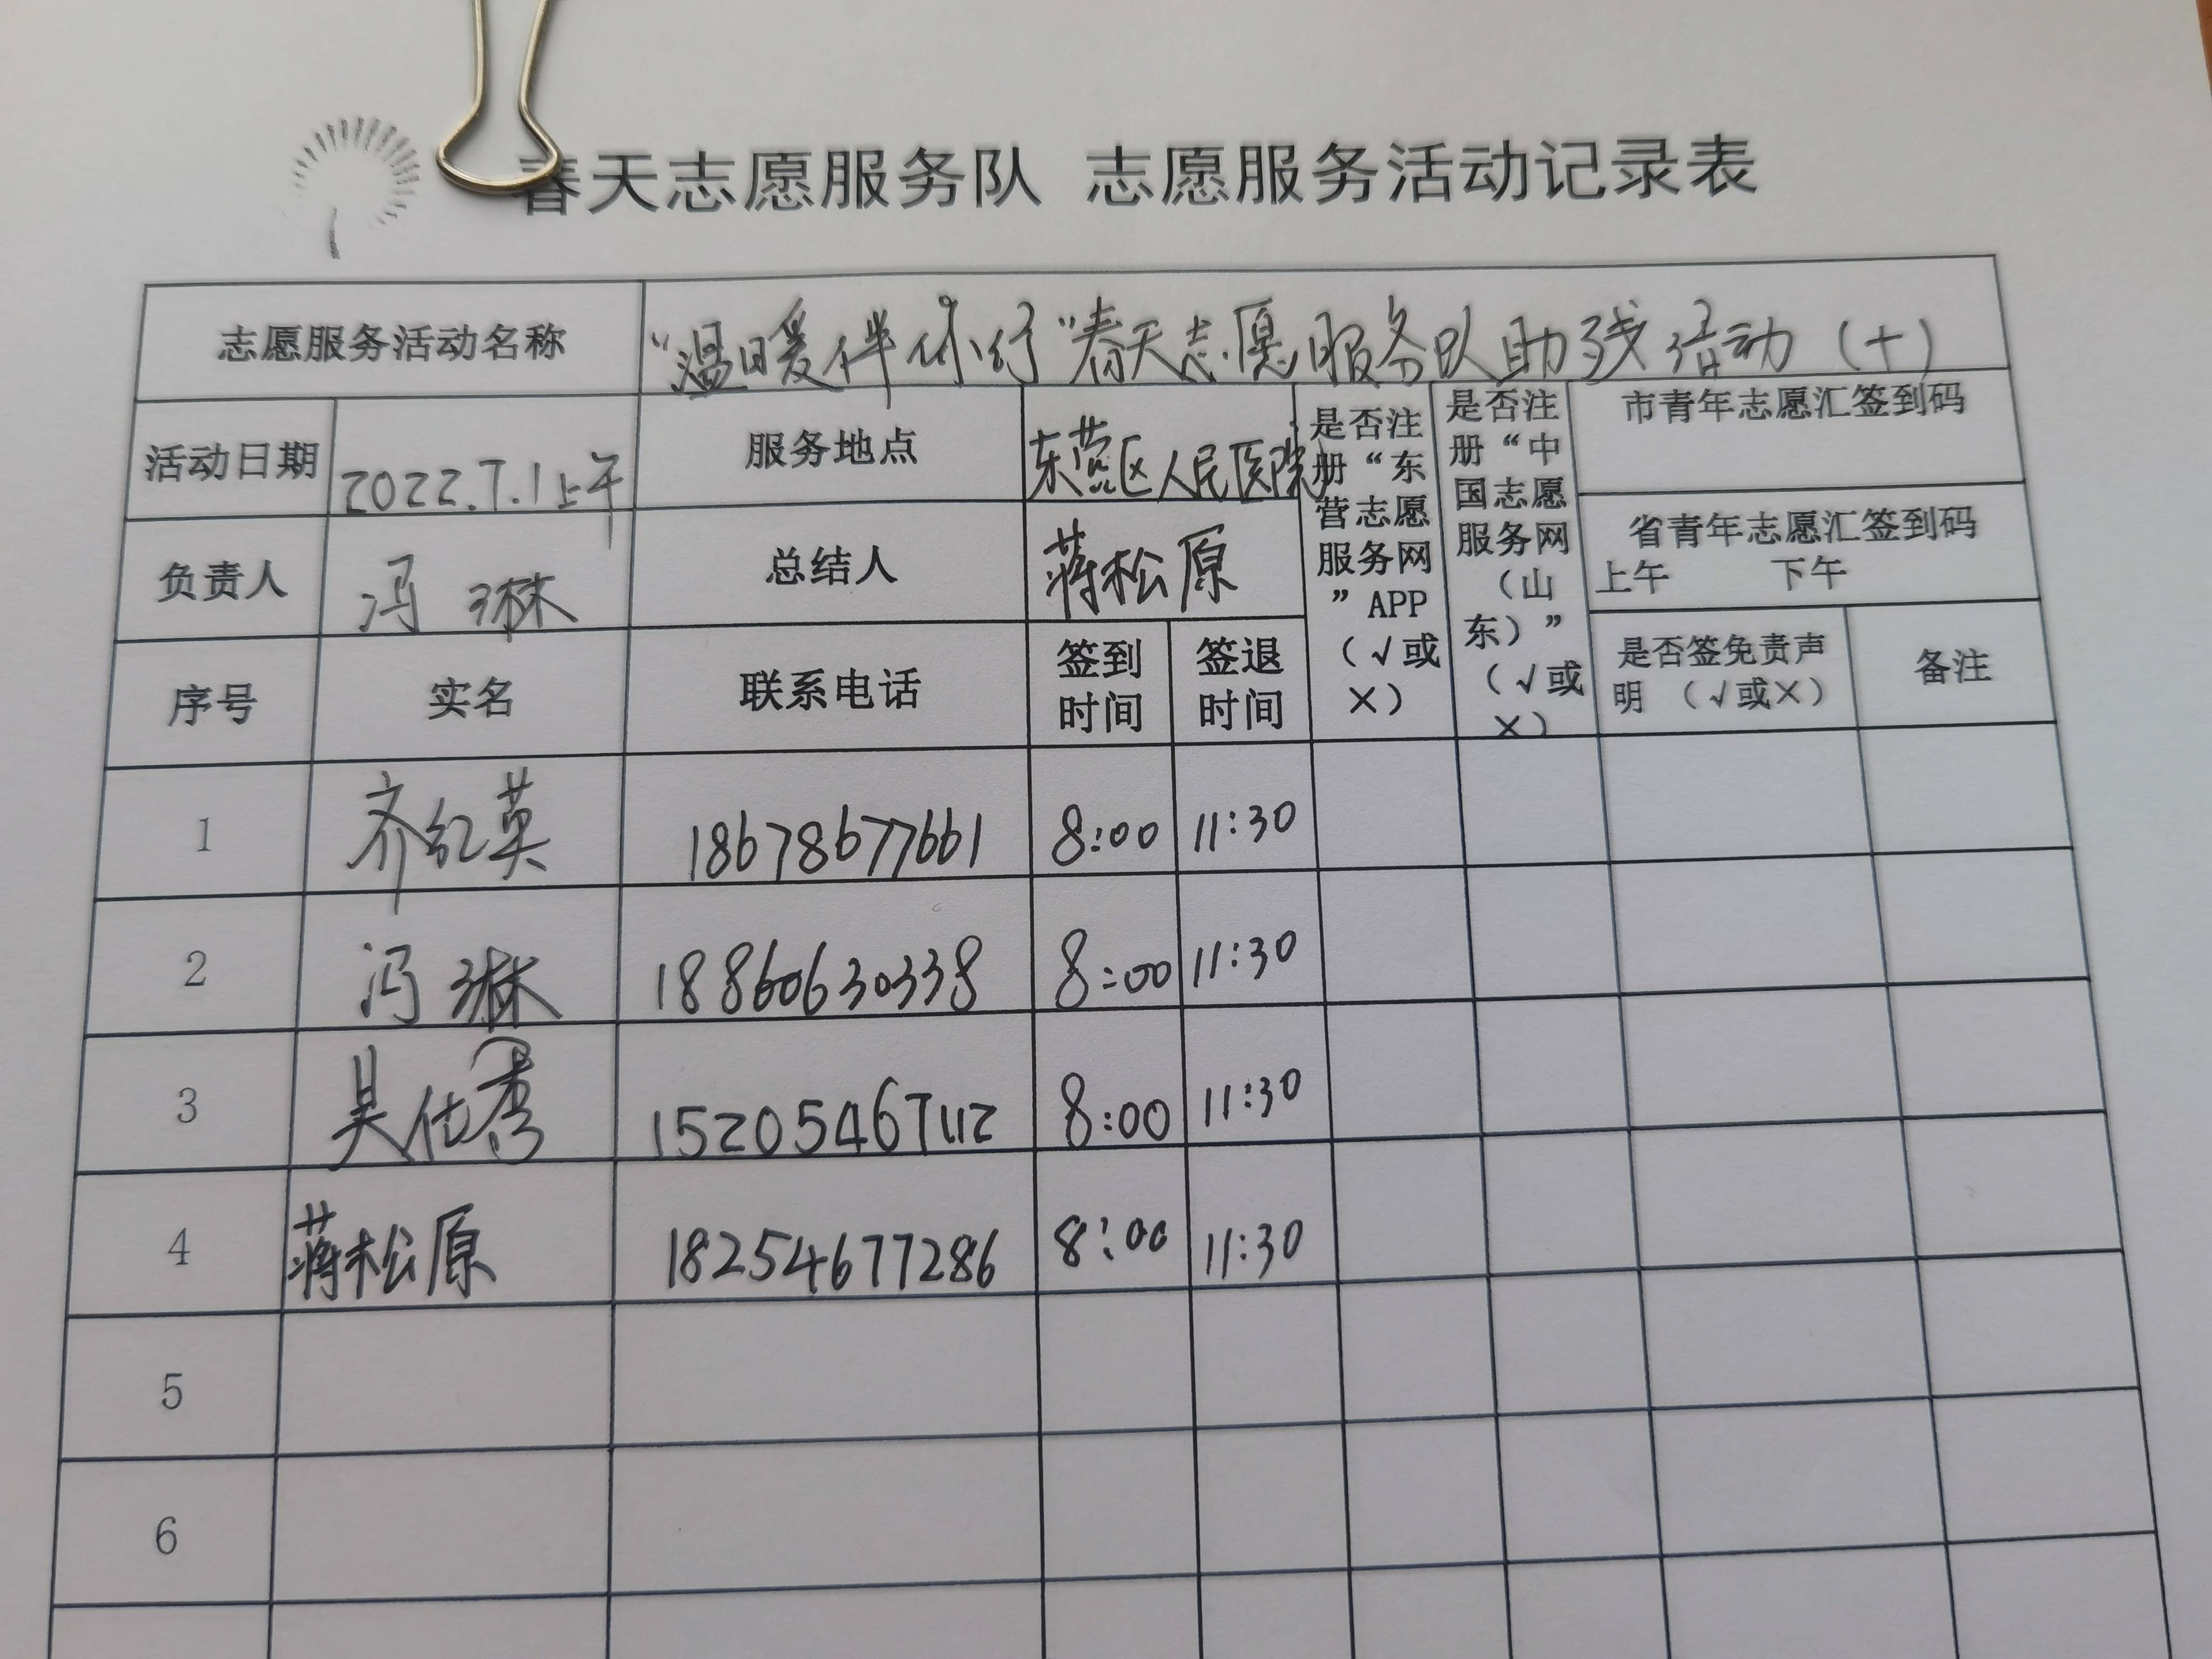 春天志愿服务队 志愿服务活动记录表
志愿服务活动名称 “温暖伴你行”春天志愿服务队助残活动（十）
活动日期 2022.7.1上午 服务地点 东营区人民医院
是否注册“东营志愿服务网”APP（√或×）
是否注册“中国志愿服务网（山东）”（√或×）
市青年志愿汇签到码
省青年志愿汇签到码
上午 下午
负责人 冯琳 总结人 蒋松原
序号 实名 联系电话 签到时间 签退时间 是否签免责声明（√或×） 备注
1 齐红英 18678677661 8:00 11:30
2 冯琳 18860630338 8:00 11:30
3 吴仕秀 15205467112 8:00 11:30
4 蒋松原 18254677286 8:00 11:30
5
6